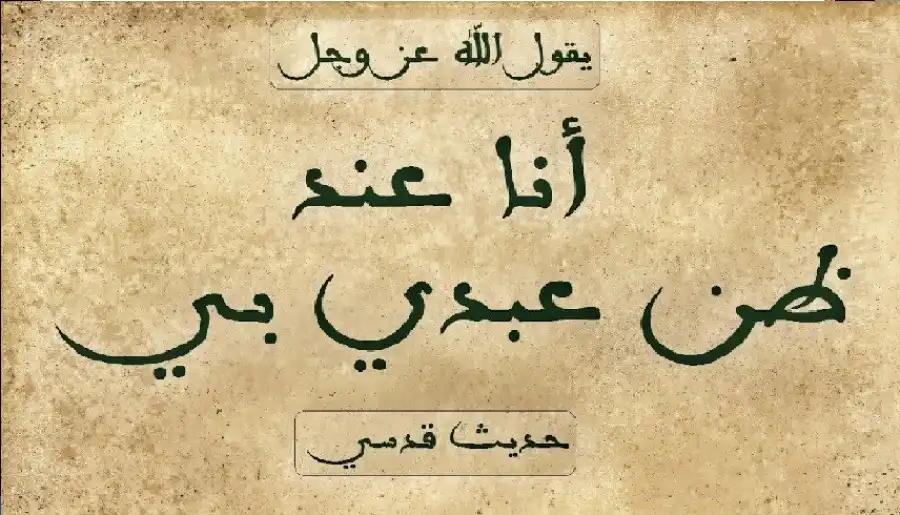 يقول الله عز وجل
أنا عند
ظن عبدي بي
حديث قدسي